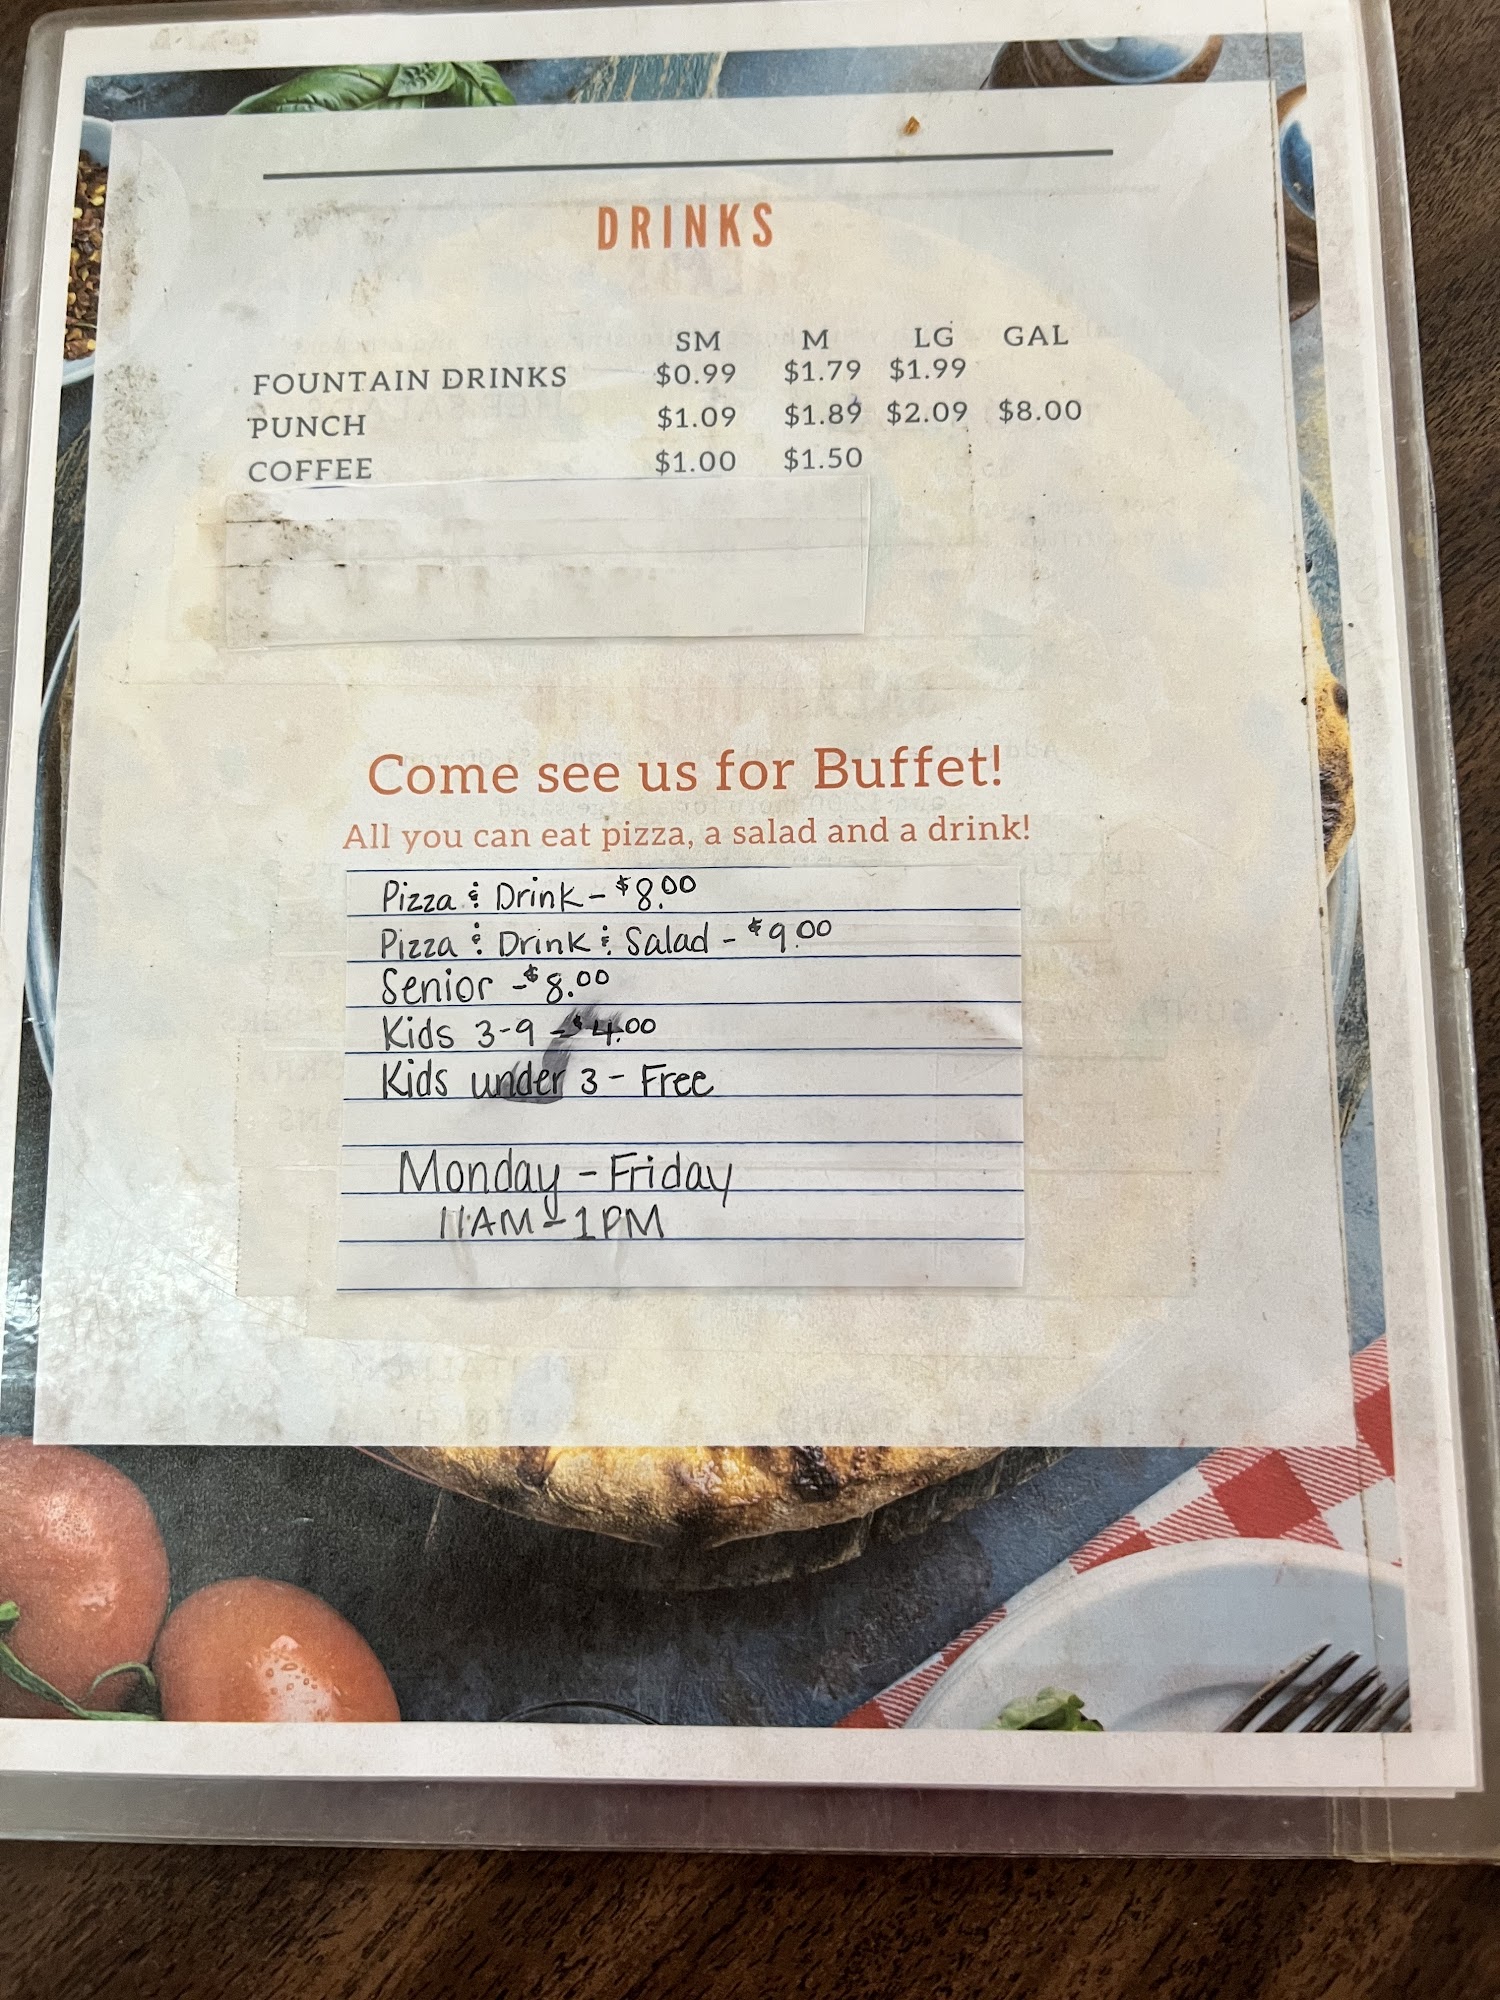 DRINKS
SM M LG GAL
FOUNTAIN DRINKS $0.99 $1.79 $1.99
PUNCH $1.09 $1.89 $2.09 $8.00
COFFEE $1.00 $1.50
Come see us for Buffet!
All you can eat pizza, a salad and a drink!
Pizza & Drink - $8.00
Pizza & Drink & Salad - $9.00
Senior - $8.00
Kids 3-9 - $4.00
Kids under 3 - Free
Monday - Friday
11AM - 1PM